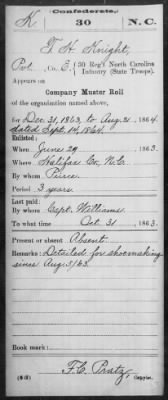 Confederate.
K 30 N.C.
T H Knight,
Pvt., Co. E, 30 Reg't North Carolina
Infantry (State Troops).
Appears on
Company Muster Roll
of the organization named above,
for Dec. 31, 1863, to Aug. 31, 1864.
dated Sept. 14, 1864.
Enlisted:
When June 29, 1863.
Where Halifax Co. N.C.
By whom Peirce
Period 3 years.
Last paid:
By whom Capt. Williams
To what time Oct. 31, 1863.
Present or absent Absent
Remarks: Detailed for shoemaking
since Aug. 3/63.
Book mark:
F. C. Pratz,
Copyist.